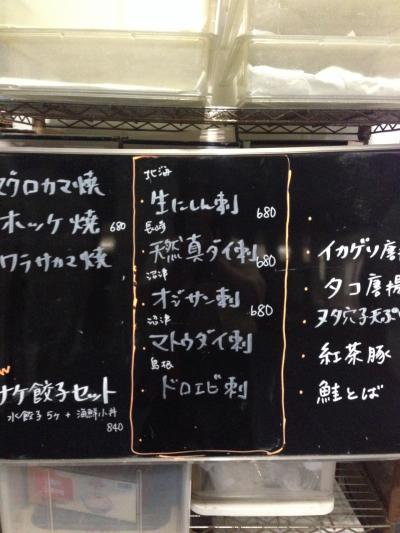 マグロカマ焼
ホッケ焼 680
ワラサカマ焼
ナケ餃子セット
水餃子5ヶ + 海鮮小丼
840
北海
・生にしん刺 680
長崎
・天然真ダイ刺 680
沼津
・オジサン刺 680
沼津
・マトウダイ刺
島根
・ドロエビ刺
・イカゲソ唐揚
・タコ唐揚
・ヌタ穴子天ぷら
・紅茶豚
・鮭とば